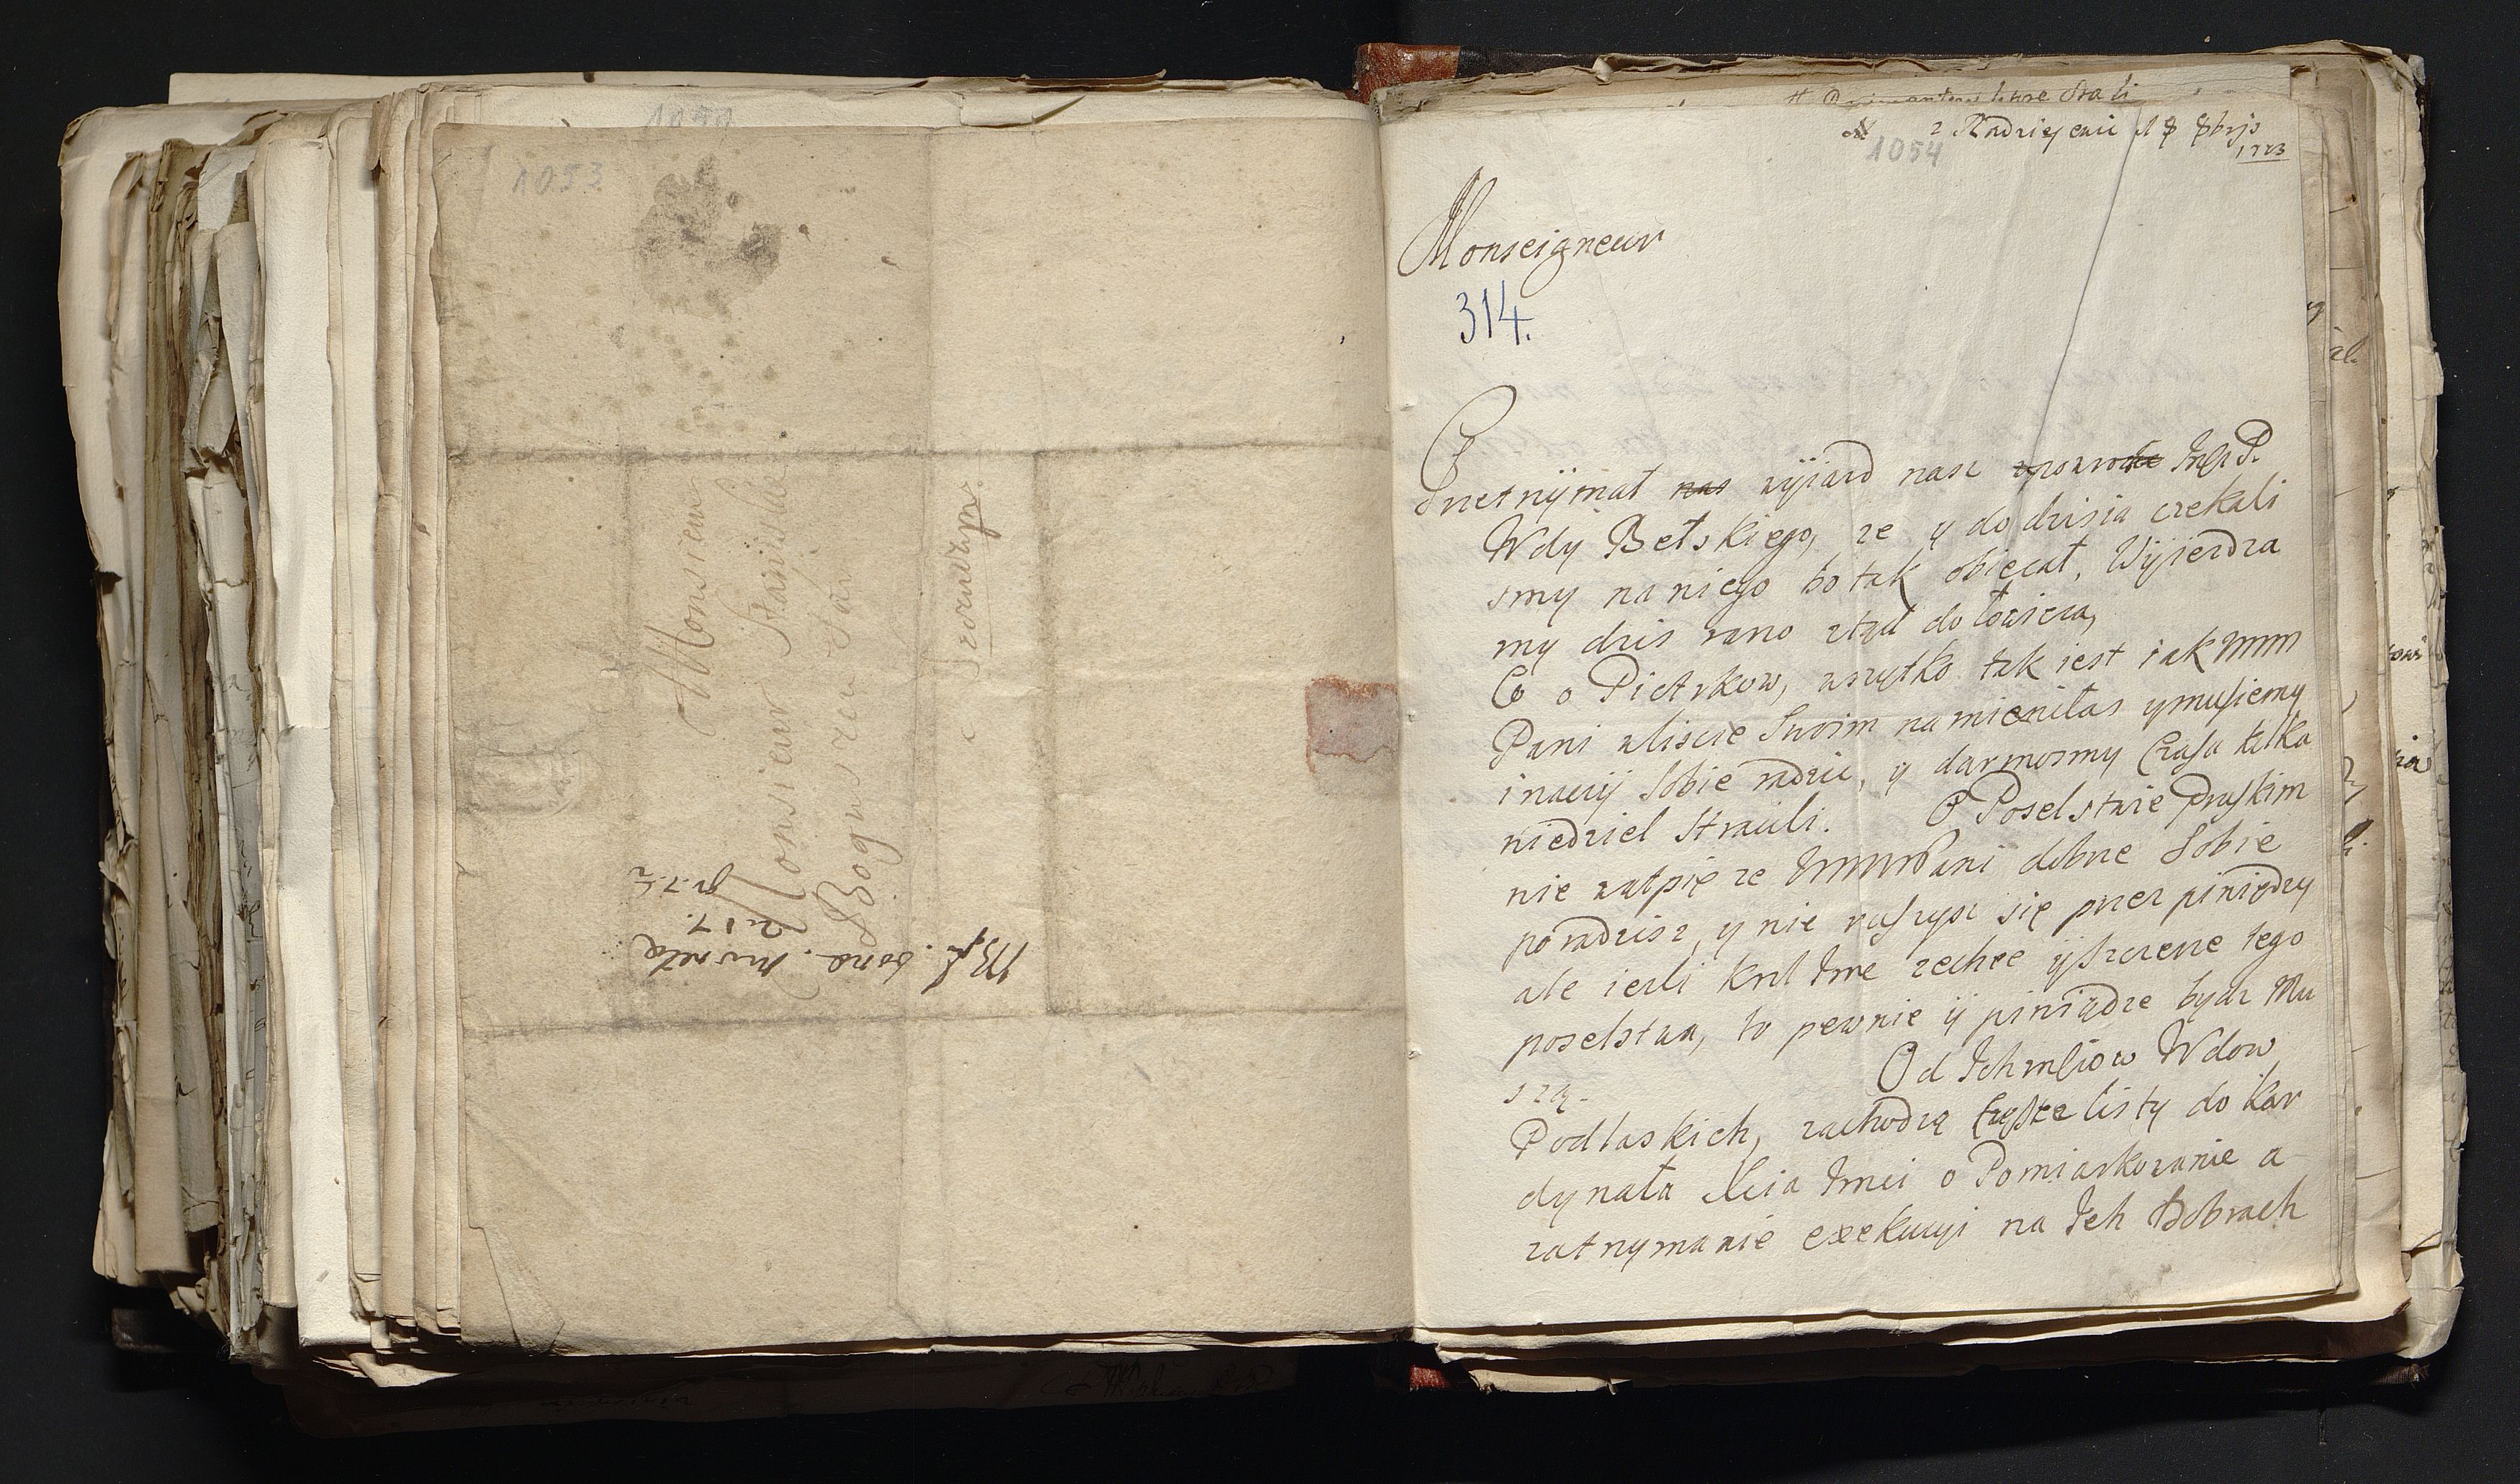 1053
Monsieur
Monsieur Stanisław
Boguszeu
bona moneta
1054
z Radziejowic 18 8brjs
1723
Monseigneur
314.
Przetrzymał nas wyjazd nasz JmP.
Wdy Bełskiego, ze y do dzisia czekali
smy na niego bo tak obiecał, Wyjezdza
my dzis rano ztąd do Łowicza,
Co o Piotrkow, wszytko tak iest iak Wmm
Pani wliscie Swoim namieniłas y musiemy
inaczy Sobie radzic, y darmosmy Czasu kilka
niedziel Stracili. O Poselstwie Pruskim
nie watpię ze WmmPani dobrze Sobie
poradzisz, y nie ruszysz się przez piniędzy
ale iezli Krol Jme zechce ÿ Szczerze tego
poselstwa, to pewnie ÿ piniądze bydz Mu
szą.
Od Ichmściow Wdow
Podlaskich, zachodzą Częste listy do Kar
dynała Xcia Jmci o Pomiarkowanie a
zatrzymanie exekucyi na Ich Dobrach